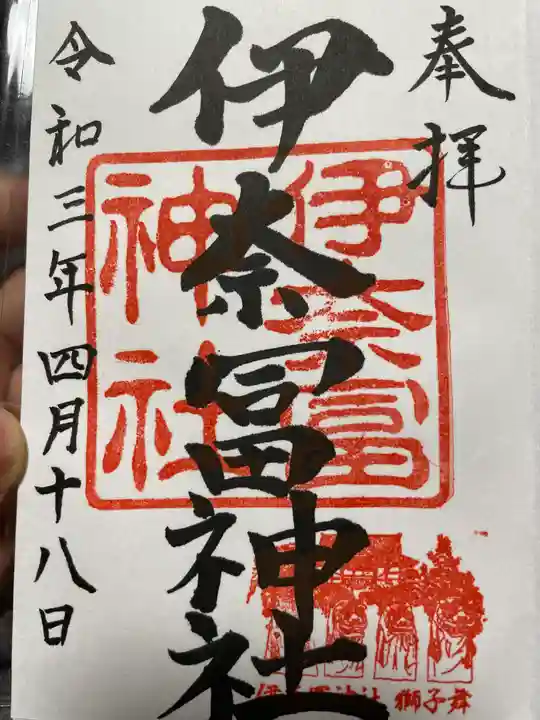 奉拝
伊奈冨神社
令和三年四月十八日
伊奈富
神社
伊奈冨神社 獅子舞